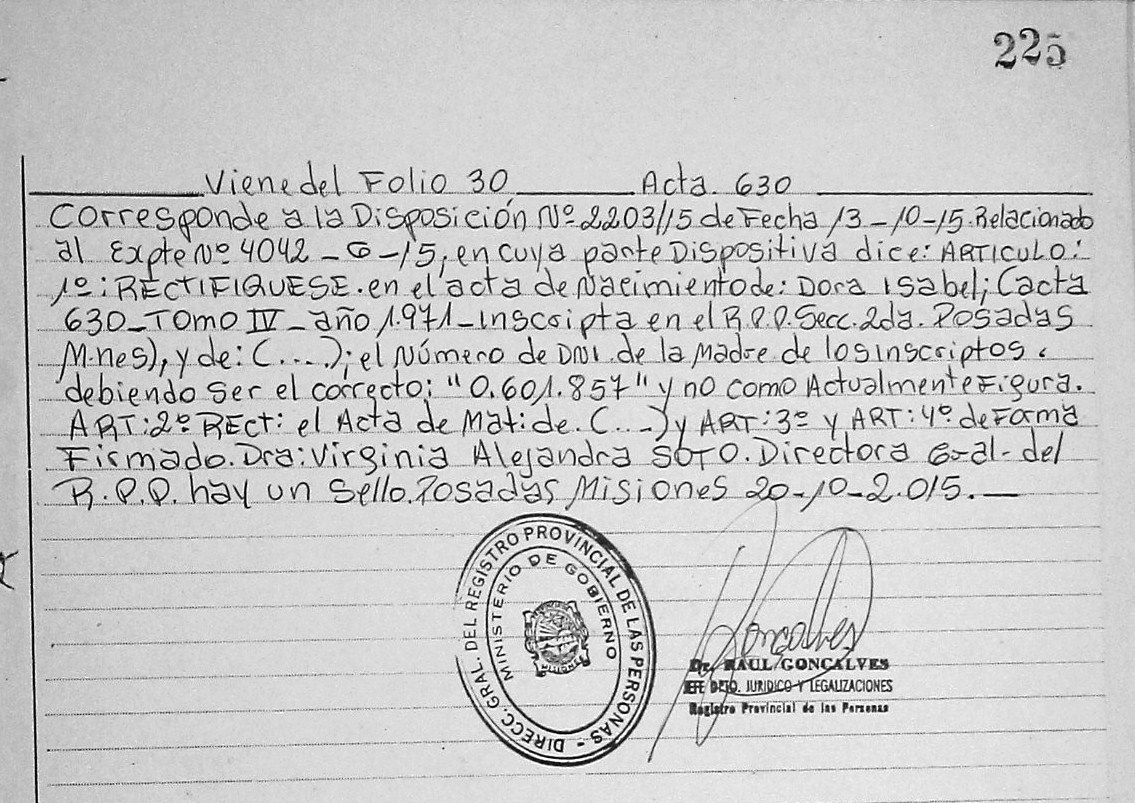 225
Viene del Folio 30 Acta. 630
Corresponde a la Disposición Nº 2203/15 de Fecha 13-10-15. Relacionado
al Expte Nº 4042-G-15, en cuya parte Dispositiva dice: ARTICULO:
1º: RECTIFIQUESE. en el acta de Nacimiento de: Dora Isabel; (acta
630_Tomo IV_año 1.971_inscripta en el R.P.P. Secc. 2da. Posadas
M.nes), y de: (....); el Número de DNI. de la Madre de los inscriptos.
debiendo ser el correcto: "0.601.857" y no como Actualmente Figura.
ART: 2º RECT: el Acta de Mat: de. (....) y ART: 3º y ART: 4º de Forma
Firmado. Dra: Virginia Alejandra SOTO. Directora Gral- del
R.P.P. hay un Sello. Posadas Misiones 20-10-2.015.__
DIRECC. GRAL. DEL REGISTRO PROVINCIAL DE LAS PERSONAS -
MINISTERIO DE GOBIERNO
MISIONES
Goncalves
Dr. RAUL GONCALVES
JEFE DPTO. JURIDICO Y LEGALIZACIONES
Registro Provincial de las Personas